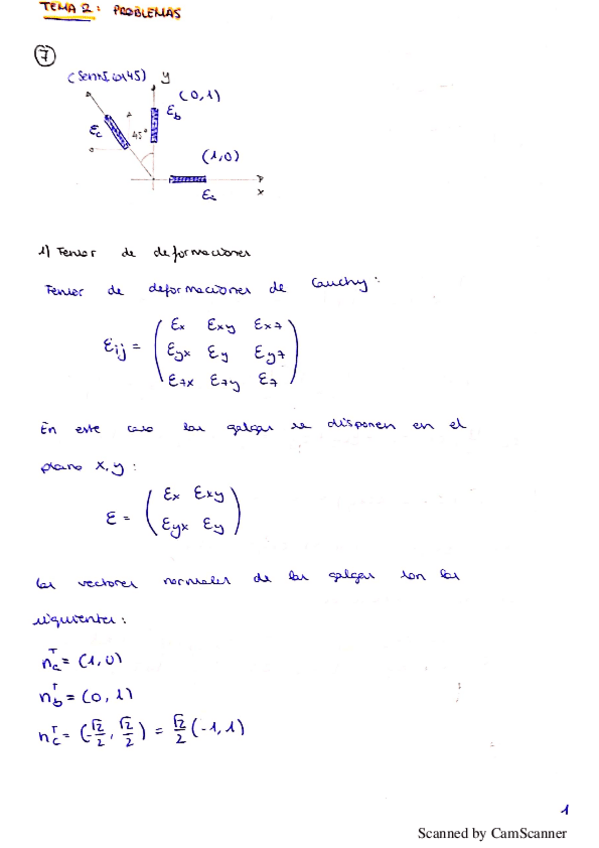 TEMA 2: PROBLEMAS
7
(sen45, cos45) y
(0,1)
εb
εc
45°
(1,0)
x
εa
1) Tensor de deformaciones
Tensor de deformaciones de Cauchy:
εij = ( εx εxy εxz
εyx εy εyz
εzx εzy εz )
En este caso las galgas se disponen en el
plano x,y:
ε = ( εx εxy
εyx εy )
Los vectores normales de las galgas son los
siguientes:
n_c^T = (1,0)
n_b^T = (0,1)
n_c^T = (-√2/2, √2/2) = √2/2 (-1,1)
1
Scanned by CamScanner